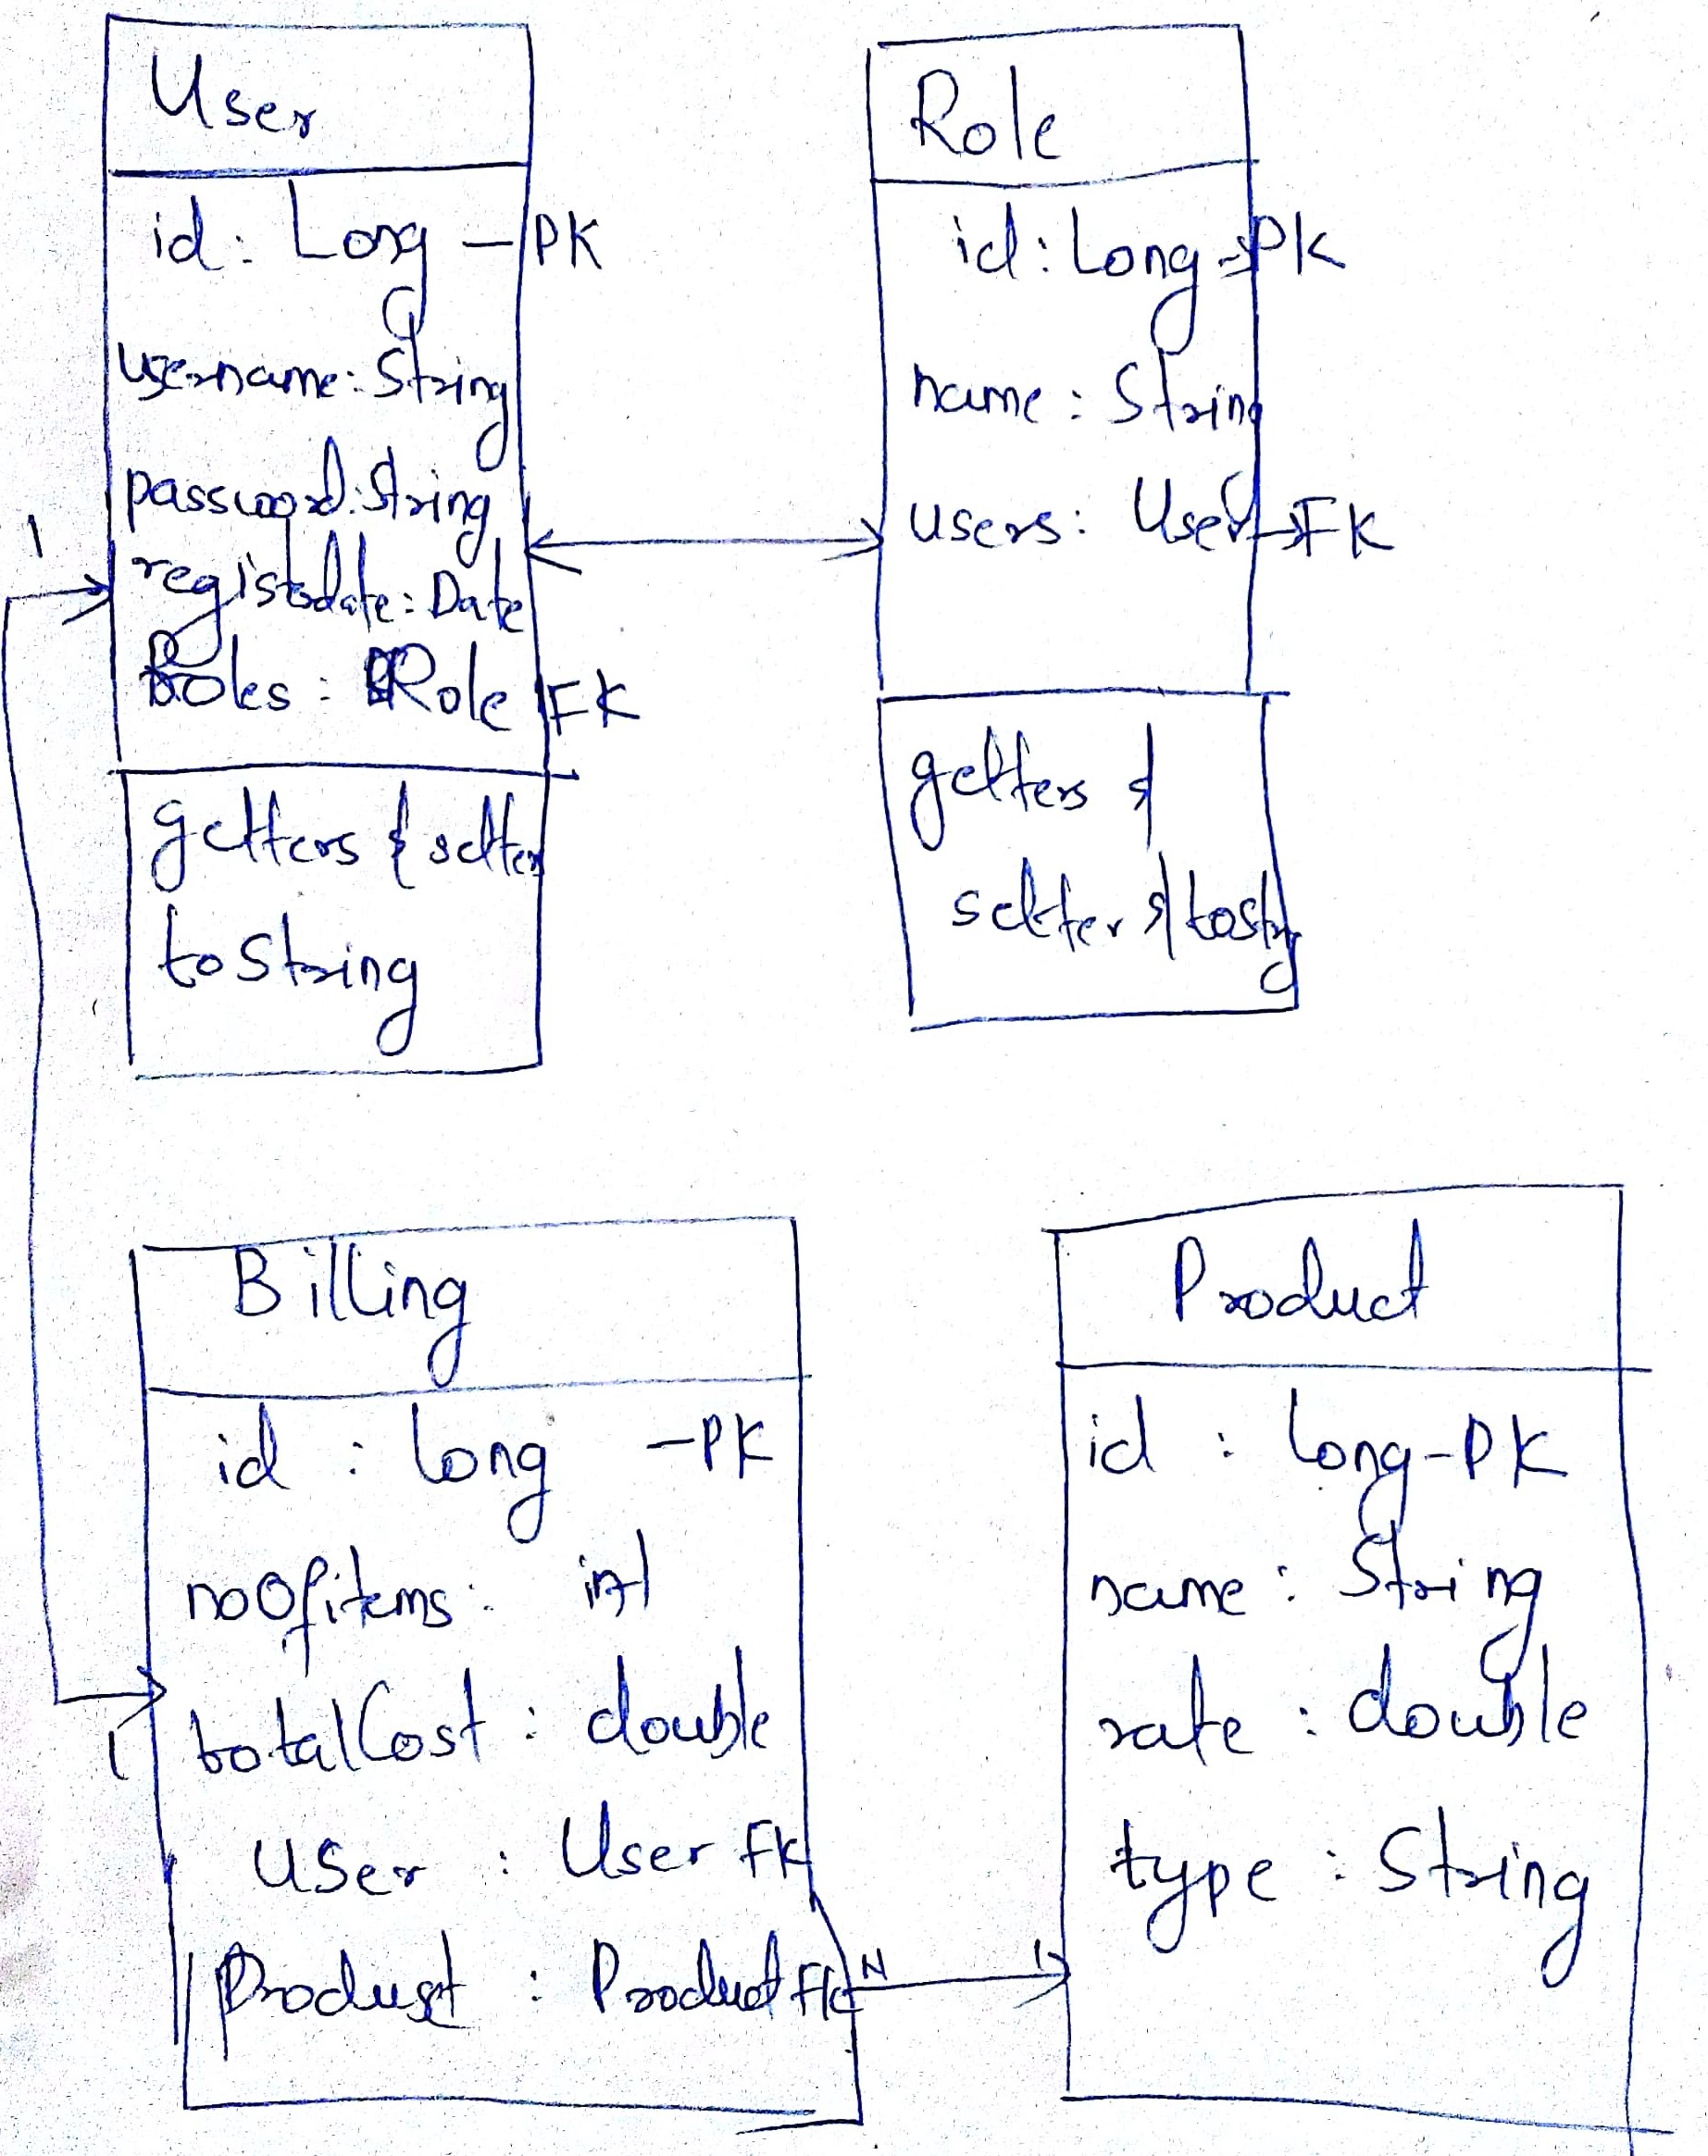 User
id: Long - PK
username: String
password: String
registdate: Date
Roles: Role FK
getters & setter
toString
1
Role
id: Long → PK
name: String
users: User → FK
getters &
setter & tostrg
Billing
id : long - PK
noOfitems: int
totalCost : double
User : User FK
Product : Product FK
1
N 1
Product
id : long - PK
name : String
rate : double
type : String